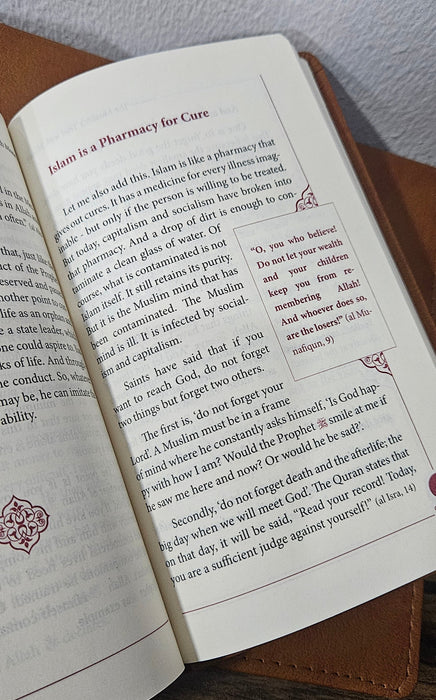 in the
s in Allah
often." (al
that, just like
act of the Prophet
reserved and pas
nother point to
life as an orphan
e a state leader, wh
one could aspire to
ks of life. And through
ne conduct. So, whatev
may be, he can imitate
ability.
Islam is a Pharmacy for Cure
Let me also add this. Islam is like a pharmacy that
gives out cures. It has a medicine for every illness imag-
able - but only if the person is willing to be treated.
But today, capitalism and socialism have broken into
that pharmacy. And a drop of dirt is enough to con-
taminate a clean glass of water. Of
course, what is contaminated is not
Islam itself. It still retains its purity.
But it is the Muslim mind that has
been contaminated. The Muslim
mind is ill. It is infected by social-
ism and capitalism.
Saints have said that if you
want to reach God, do not forget
two things but forget two others.
The first is, 'do not forget your
Lord'. A Muslim must be in a frame
of mind where he constantly asks himself, 'Is God hap-
py with how I am? Would the Prophet ﷺ smile at me if
he saw me here and now? Or would he be sad?'.
Secondly, 'do not forget death and the afterlife; the
big day when we will meet God'. The Quran states that
on that day, it will be said, "Read your record! Today,
you are a sufficient judge against yourself!" (al Isra, 14)
"O, you who believe!
Do not let your wealth
and your children
keep you from re-
membering Allah!
And whoever does so,
are the losers!" (al Mu-
nafiqun, 9)